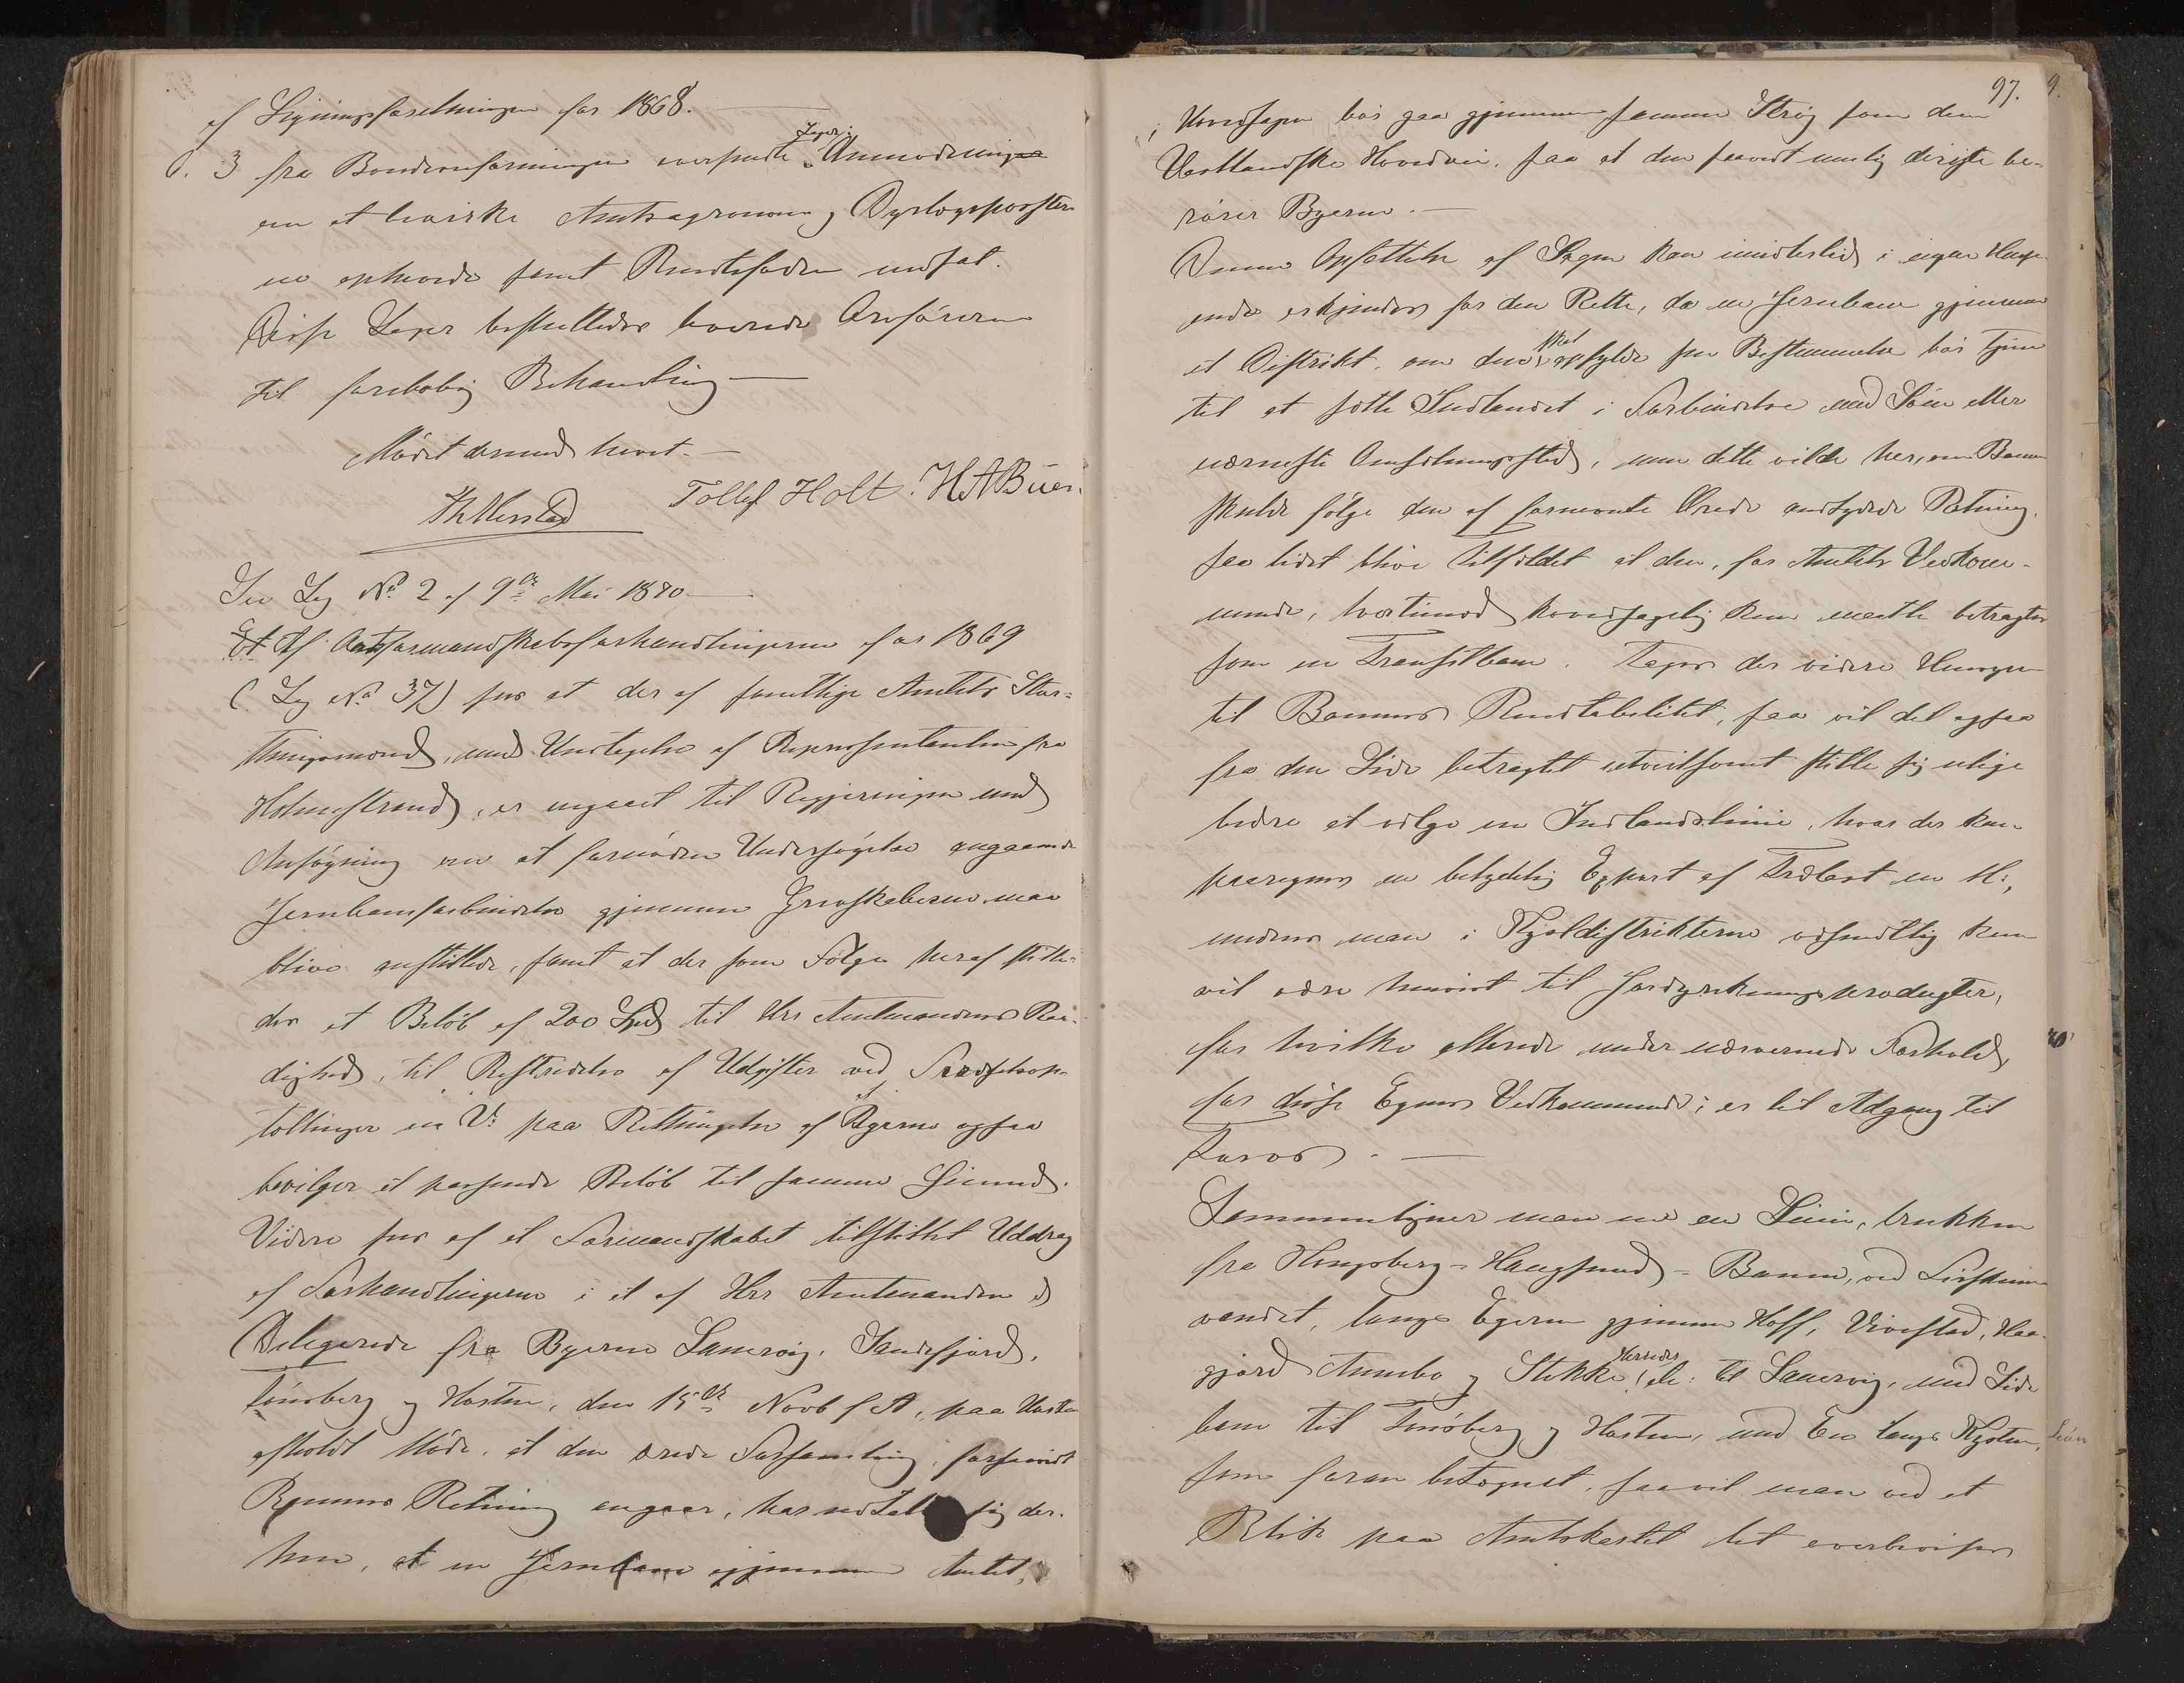 af Ligningsforretningen for 1868.
O. 3 fra Bondeforeningen oversendte Sager: Anmodninger
om at bevirke Amtsagronom og Dyrlægeposter-
ne ophævede samt Rundtsadn indsat.
Disse Sager besluttedes hverede Ordføreren
til foreløbig Behandling
Mødet dermed hævet.
Th Merstad Tollef Holt. HABuer.
See Lag No. 2 af 9de Mai 1870
Af Amtsformandskabsforhandlingerne for 1869
(Lag No. 37) sees at der af samtlige Amtets Stor-
thingsmænd, med Undtagelse af Repræsentanten fra
Holmestrand, er indgaaet til Regjeringen med
Ansøgning om at fornøden Undersøgelse angaaende
Jernbaneforbindelse gjennem Grevskaberne maa
blive anstillet, samt at der som Følge heraf stille-
des et Beløb af 200 Spd til Hrr Amtmandens Raa-
dighed, til Bestridelse af Udgifter ved
paa Betingelse af Byerne ogsaa
bevilger et passende Beløb til samme Øiemed.
Videre sees af et Formandskabet tilstillet Uddrag
af Forhandlingerne i et af Hrr Amtmanden og
Delegerede fra Byerne Laurvig, Sandefjord,
Tønsberg og Horten, den 15de Novb f A, paa Horten
afholdt Møde, at den ærede Forsamling, forsaavidt
Banens Retning angaar, har udtalt sig der-
hen, at en Jernbane gjennem Amtet,
97.
i Hovedsagen bør gaa gjennem samme Strøg som den
Vestlandske Hovedvei, saa at den saavidt mulig direkte be-
rører Byerne.
Denne Opfattelse af Sagen kan imidlertid i ingen Hense-
ende erkjendes for den Rette, da en Jernbane gjennem
et Distrikt, om den skal opfylde sin Bestemmelse bør tjene
til at sætte Indlandet i Forbindelse med Søen eller
nærmeste Omsætningssted, men dette vilde her, om Banen
skulde følge den af formente Ærede antydede Retning,
saa lidet blive Tilfældet at den, for Amtets Vedkom-
mende, tvertimod hovedsagelig kun maatte betragtes
som en Transitbane. Tages der videre Hensyn
til Banens Rentabilitet, saa vil det ogsaa
fra den Side betragtet utvilsomt stille sig ulige
bedre at vælge en Indlandslinie, hvor der kan
paaregnes en betydelig Export af Trælast en M:,
medens man i Kystdistrikterne væsentlig kun
vil være henvist til Jordyrkningsprodugter,
for hvilke allerede under nærværende Forhold,
for disse Egnes Vedkommende, er let Adgang til
Torvet.
Sammenligner man nu en Linie, trukken
fra Kongsberg-Haugsund-Banen, ved
vandet, langs Egerne gjennem Hoff, Vivestad, Haa-
gjord Arnebo og Stokke Herreder til Laurvig, med Side
bane til Tønsberg og Horten, med En langs Kysten,
som foran betegnet, saa vil man ved et
Blik paa Amtskartet let overbevises